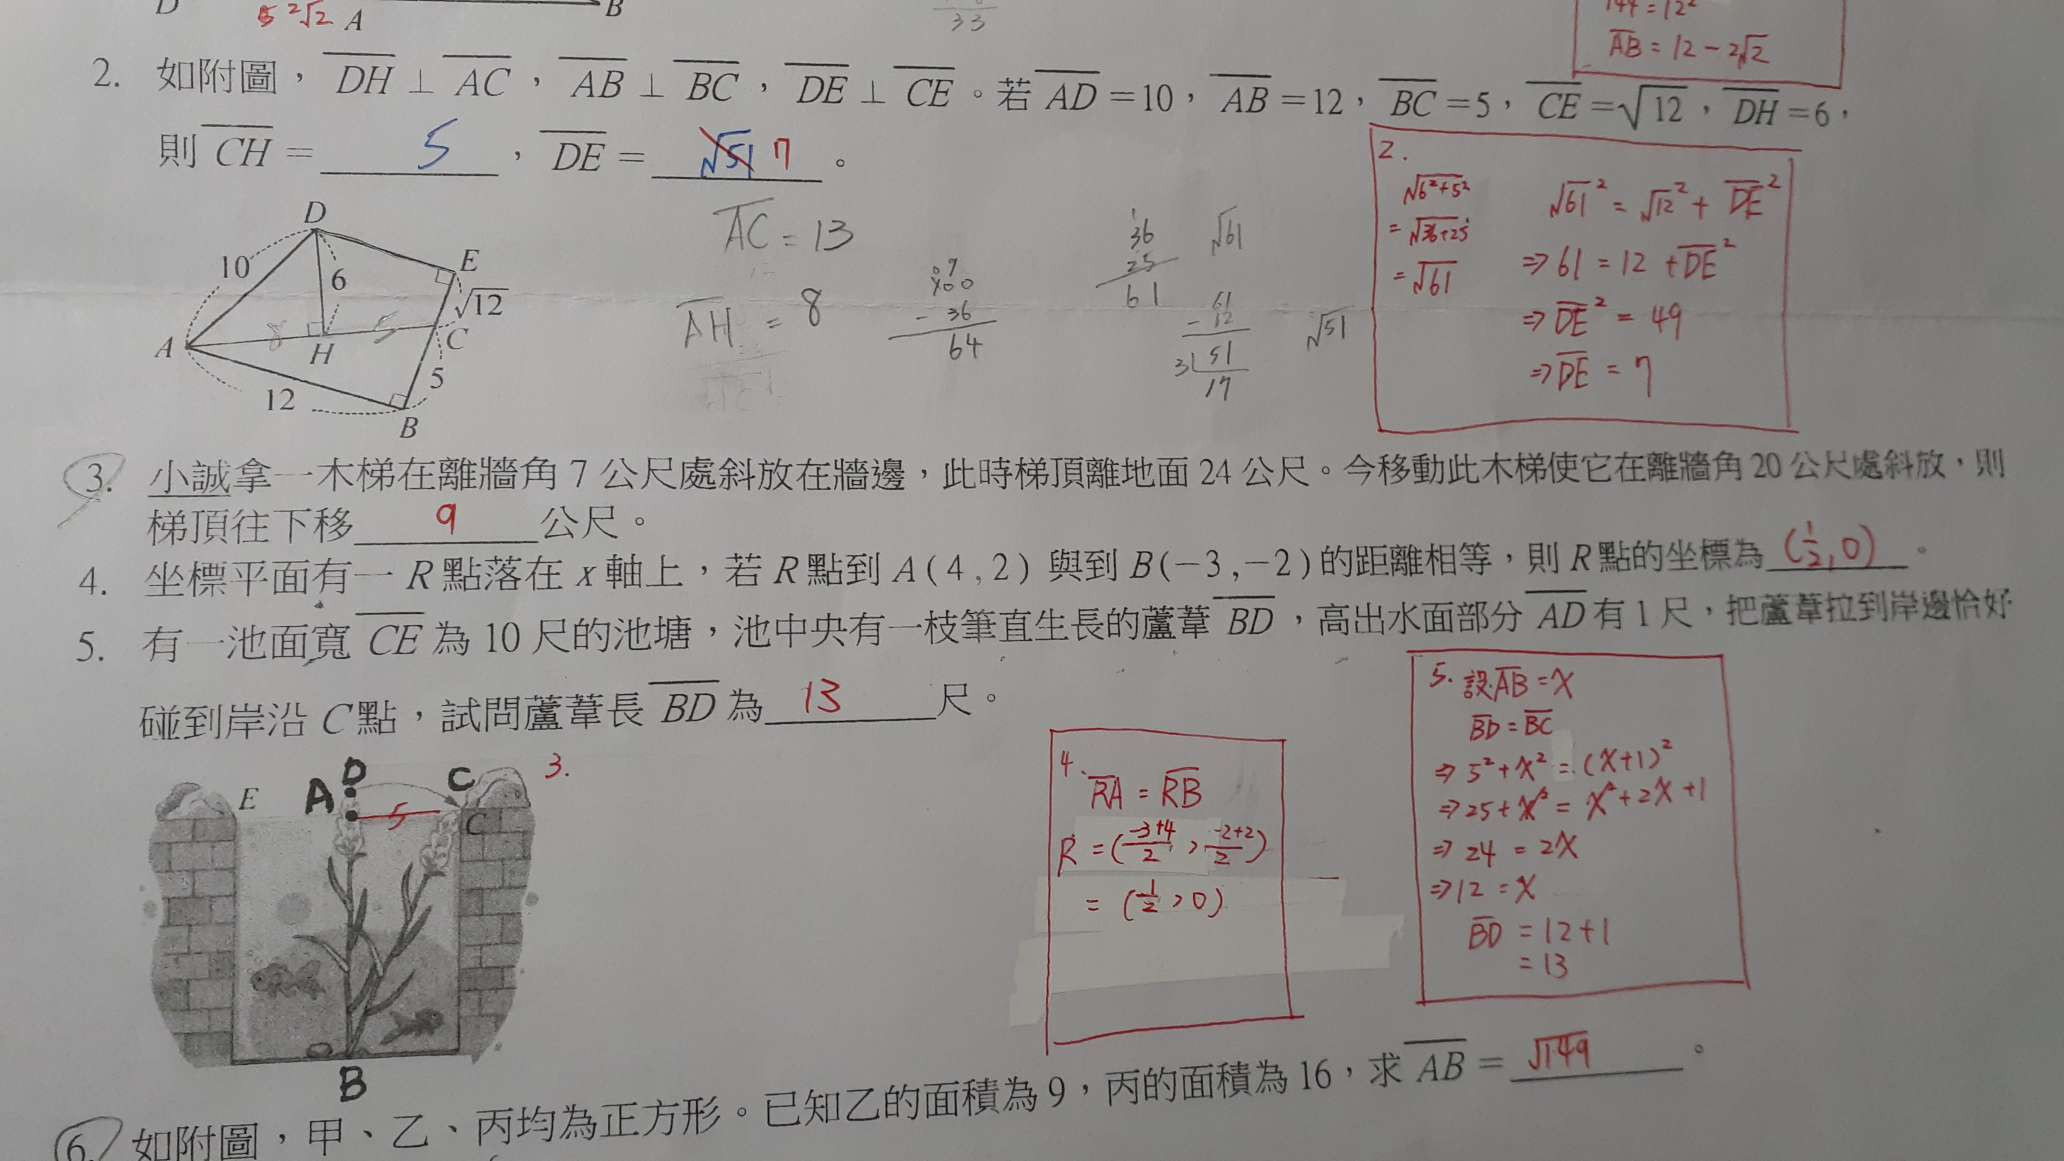 D
5²√2 A
B
33
144 = 12²
AB = 12 - 2√2
2. 如附圖，DH ⊥ AC，AB ⊥ BC，DE ⊥ CE。若 AD =10，AB =12，BC =5，CE =√12，DH =6，
則 CH = 5，DE = √51 7。
D
10
6
E
√12
A
8
5
H
C
5
12
B
AC = 13
AH = 8
100
- 36
64
36
25
61
√61
61
- 12
3 51
17
√51
2.
√6²+5²
= √36+25
= √61
√61² = √12² + DE²
⇒ 61 = 12 + DE²
⇒ DE² = 49
⇒ DE = 7
3. 小誠拿一木梯在離牆角 7 公尺處斜放在牆邊，此時梯頂離地面 24 公尺。今移動此木梯使它在離牆角 20 公尺處斜放，則
梯頂往下移 9 公尺。
4. 坐標平面有一 R 點落在 x 軸上，若 R 點到 A(4,2) 與到 B(−3,−2)的距離相等，則 R 點的坐標為 (1/2, 0)。
5. 有一池面寬 CE 為 10 尺的池塘，池中央有一枝筆直生長的蘆葦 BD，高出水面部分 AD 有 1 尺，把蘆葦拉到岸邊恰好
碰到岸沿 C 點，試問蘆葦長 BD 為 13 尺。
3.
E
A
D
C
5
C
B
4.
RA = RB
R = (-3+4/2, -2+2/2)
= (1/2, 0)
5. 設AB = X
BD = BC
⇒ 5² + X² = (X+1)²
⇒ 25 + X² = X² + 2X + 1
⇒ 24 = 2X
⇒ 12 = X
BD = 12 + 1
= 13
6. 如附圖，甲、乙、丙均為正方形。已知乙的面積為 9，丙的面積為 16，求 AB = √149。